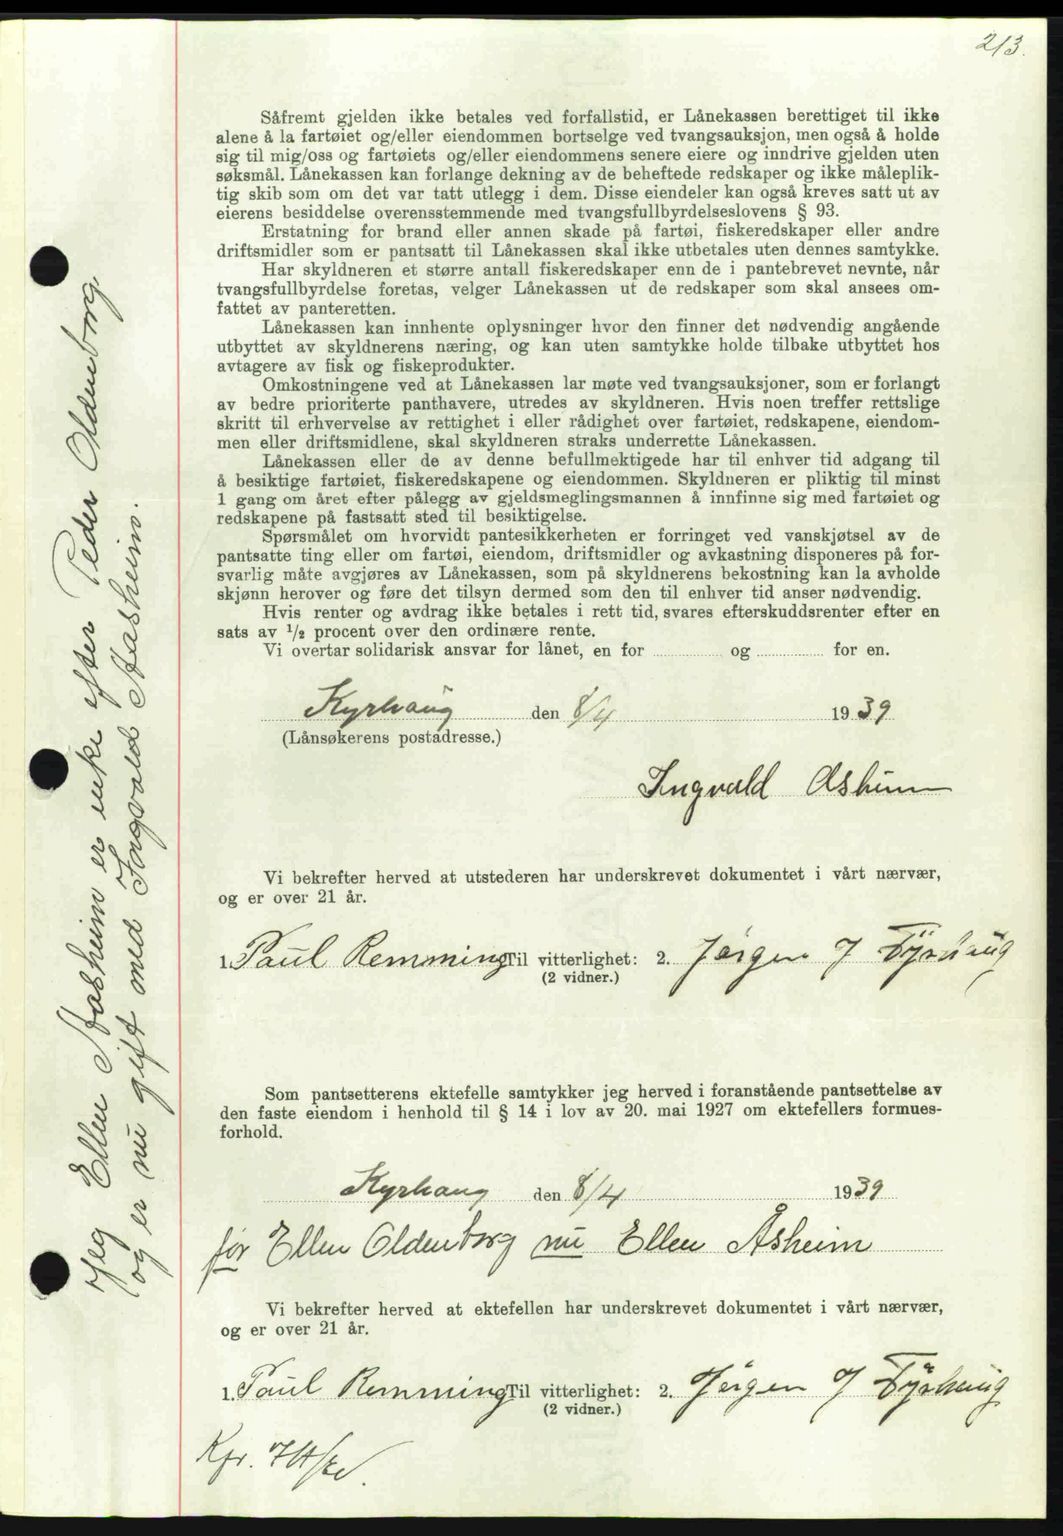 213.
Såfremt gjelden ikke betales ved forfallstid, er Lånekassen berettiget til ikke
alene å la fartøiet og/eller eiendommen bortselge ved tvangsauksjon, men også å holde
sig til mig/oss og fartøiets og/eller eiendommens senere eiere og inndrive gjelden uten
søksmål. Lånekassen kan forlange dekning av de beheftede redskaper og ikke måleplik-
tig skib som om det var tatt utlegg i dem. Disse eiendeler kan også kreves satt ut av
eierens besiddelse overensstemmende med tvangsfullbyrdelseslovens § 93.
Erstatning for brand eller annen skade på fartøi, fiskeredskaper eller andre
driftsmidler som er pantsatt til Lånekassen skal ikke utbetales uten dennes samtykke.
Har skyldneren et større antall fiskeredskaper enn de i pantebrevet nevnte, når
tvangsfullbyrdelse foretas, velger Lånekassen ut de redskaper som skal ansees om-
fattet av panteretten.
Lånekassen kan innhente oplysninger hvor den finner det nødvendig angående
utbyttet av skyldnerens næring, og kan uten samtykke holde tilbake utbyttet hos
avtagere av fisk og fiskeprodukter.
Omkostningene ved at Lånekassen lar møte ved tvangsauksjoner, som er forlangt
av bedre prioriterte panthavere, utredes av skyldneren. Hvis noen treffer rettslige
skritt til erhvervelse av rettighet i eller rådighet over fartøiet, redskapene, eiendom-
men eller driftsmidlene, skal skyldneren straks underrette Lånekassen.
Lånekassen eller de av denne befullmektigede har til enhver tid adgang til
å besiktige fartøiet, fiskeredskapene og eiendommen. Skyldneren er pliktig til minst
1 gang om året efter pålegg av gjeldsmeglingsmannen å innfinne sig med fartøiet og
redskapene på fastsatt sted til besiktigelse.
Spørsmålet om hvorvidt pantesikkerheten er forringet ved vanskjøtsel av de
pantsatte ting eller om fartøi, eiendom, driftsmidler og avkastning disponeres på for-
svarlig måte avgjøres av Lånekassen, som på skyldnerens bekostning kan la avholde
skjønn herover og føre det tilsyn dermed som den til enhver tid anser nødvendig.
Hvis renter og avdrag ikke betales i rett tid, svares efterskuddsrenter efter en
sats av ½ procent over den ordinære rente.
Vi overtar solidarisk ansvar for lånet, en for og for en.
Kyrhaug den 8/4 1939
(Lånsøkerens postadresse.)
Ingvald Åsheim
Vi bekrefter herved at utstederen har underskrevet dokumentet i vårt nærvær,
og er over 21 år.
1. Paul Remming Til vitterlighet: 2. Jørgen J Fyrhaug
(2 vidner.)
Som pantsetterens ektefelle samtykker jeg herved i foranstående pantsettelse av
den faste eiendom i henhold til § 14 i lov av 20. mai 1927 om ektefellers formues-
forhold.
Kyrhaug den 8/4 1939
før Ellen Oldenborg nu Ellen Åsheim
Vi bekrefter herved at ektefellen har underskrevet dokumentet i vårt nærvær,
og er over 21 år.
1. Paul Remming Til vitterlighet: 2. Jørgen J Fyrhaug
(2 vidner.)
Kfr.
Jeg Ellen Aasheim er enke efter Peder Oldenborg
og er nu gift med Ingvald Aasheim.